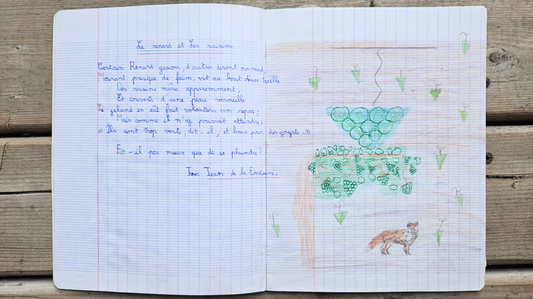 Le renard et les raisins
Certain Renart gascon d'autres disent normand,
Mourant presque de faim, vit au haut d'une treille
Des raisins mûrs apparemment,
Et couverts d'une peau vermeille
Le galand en eût fait volontiers un repas;
Mais comme il n'y pouvait atteindre:
« Ils sont trop verts, dit-il, et bons pour des goujats. »
Fit-il pas mieux que de se plaindre?
Jean de la Fontaine.